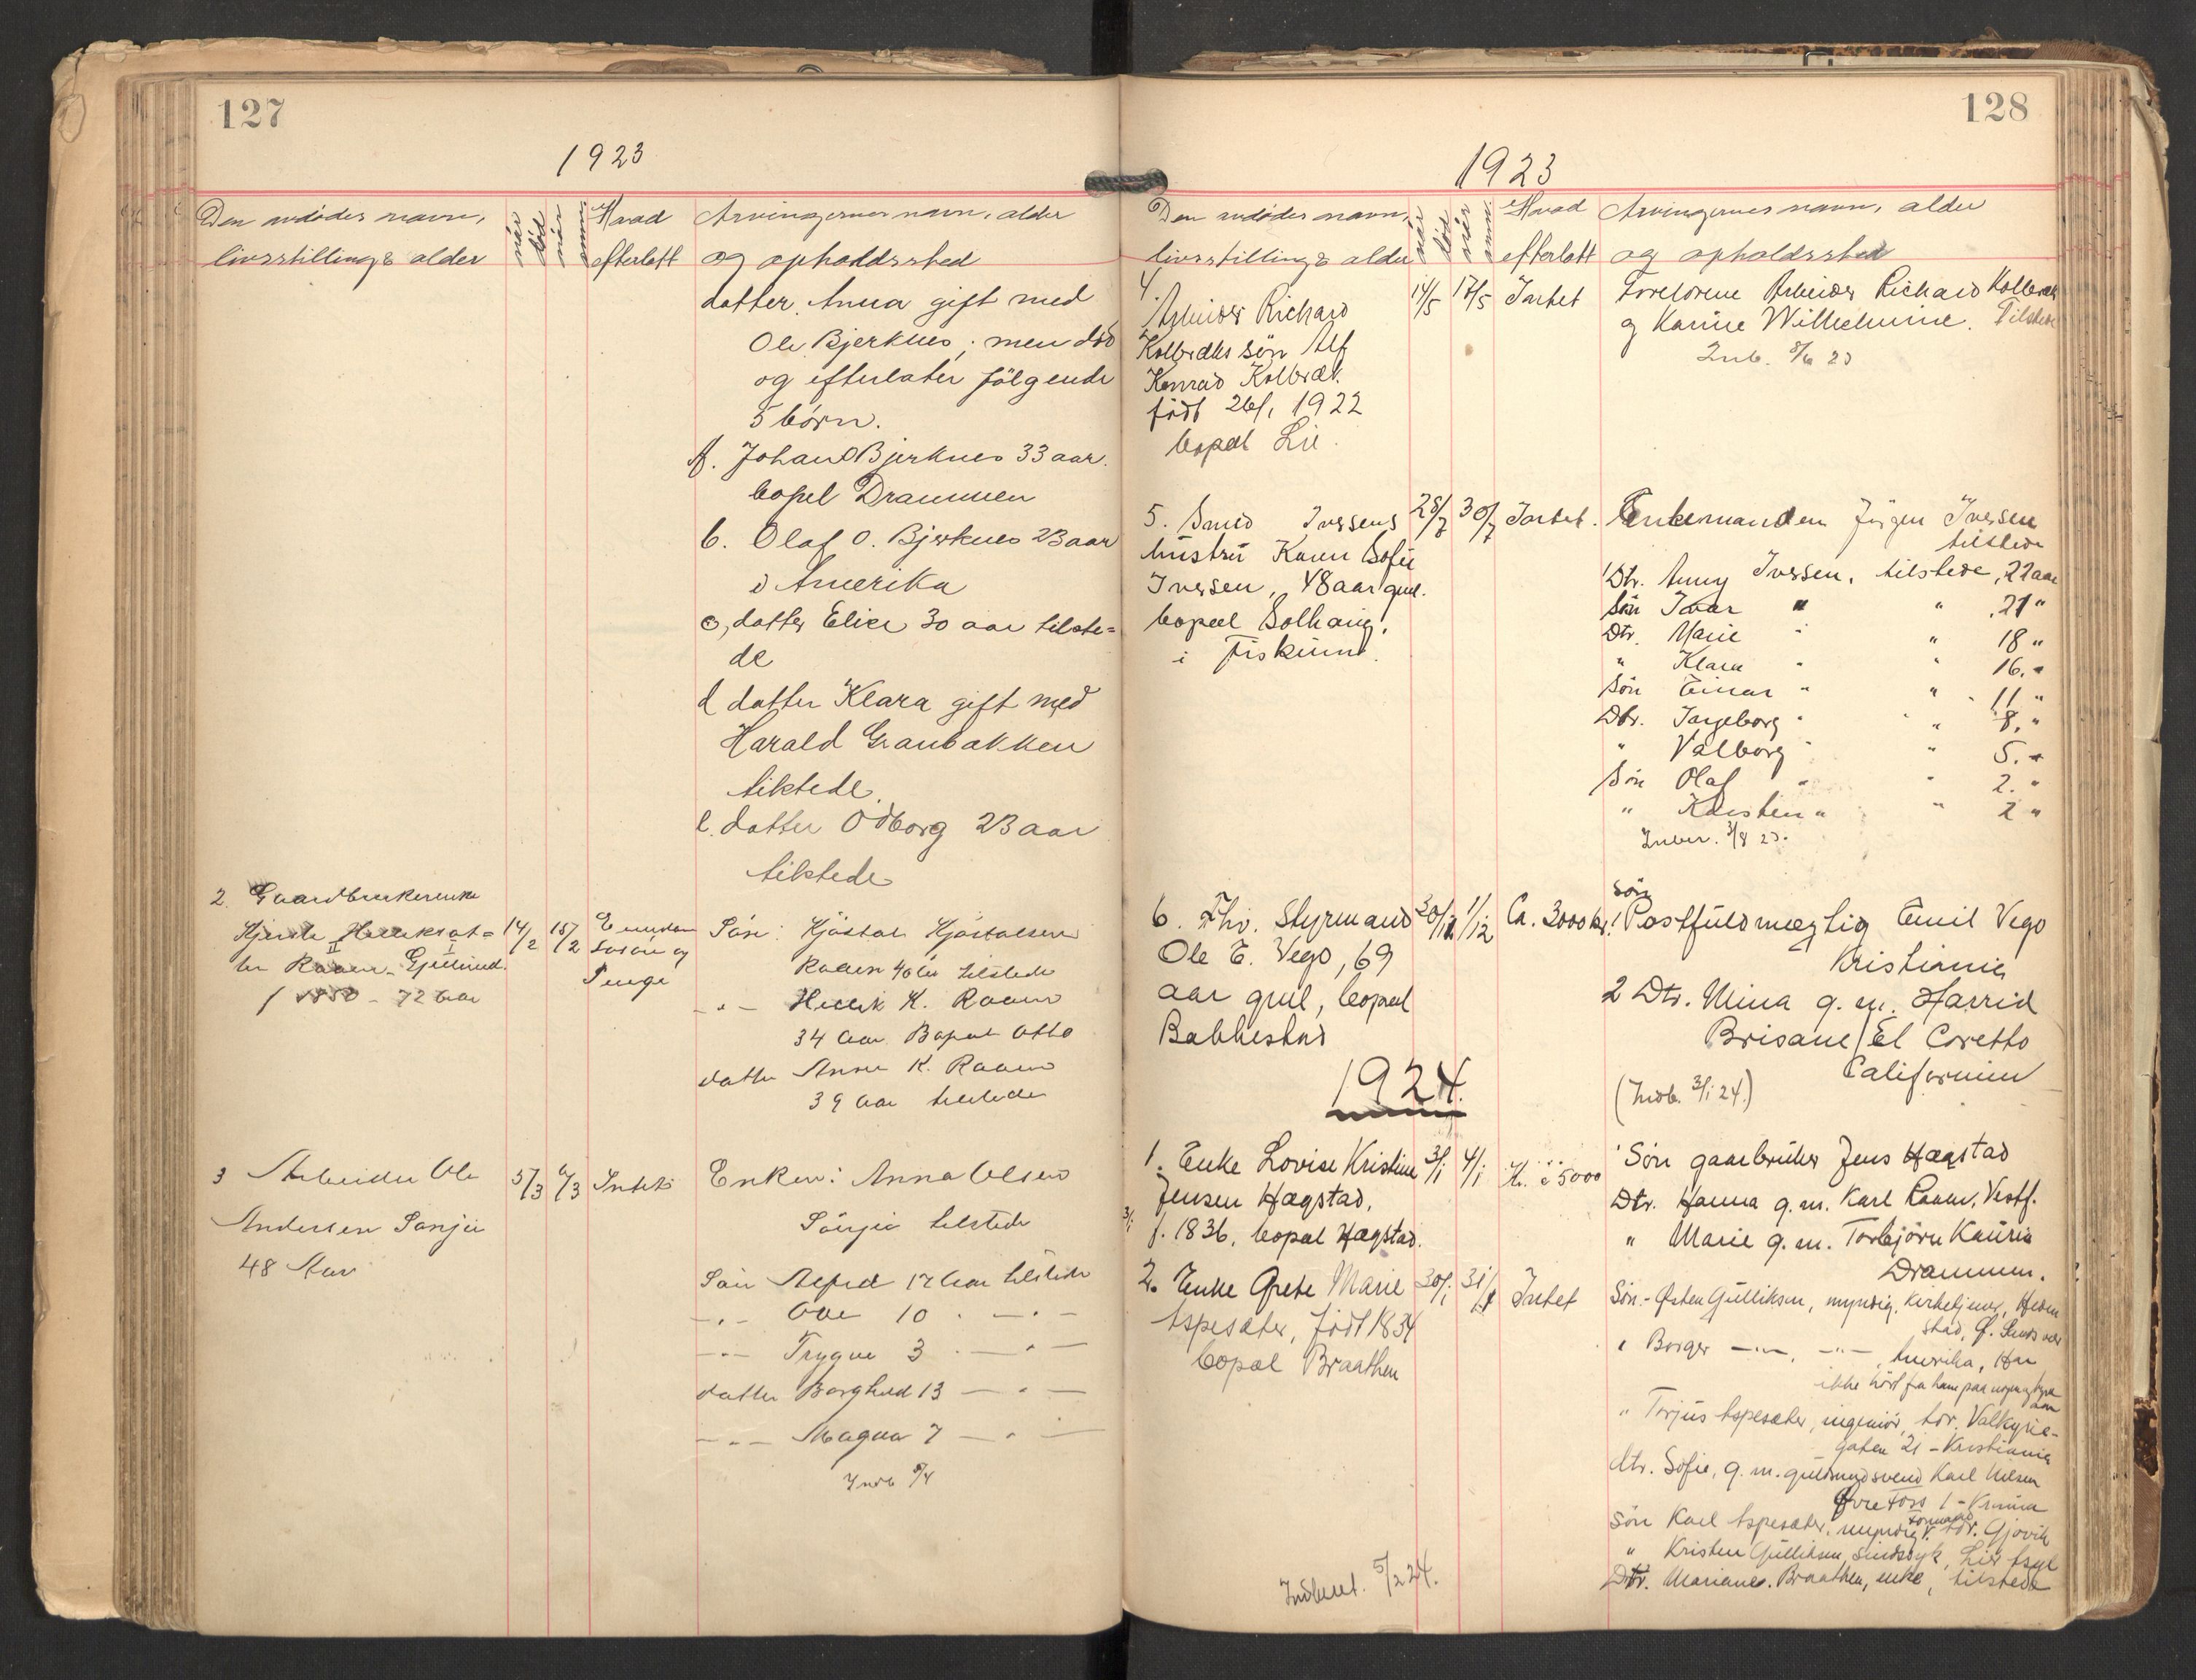 127
1923
Den avdødes navn,
livsstilling & alder
når
död
når
anm.
Hvad
efterlatt
Arvingernes navn, alder
og opholdssted
datter Anna gift med
Ole Bjerknes, men död
og efterlater fölgende
5 börn.
Johan O Bjerknes 33 aar.
bopel Drammen
b. Olaf O. Bjerknes 23 aar
i Amerika
c, datter Elise 30 aar tilste=
de
d datter Klara gift med
Harald Granbakken
tilstede.
e. datter Odborg 23 aar
tilstede
2. Gaardbrukerenke
14/2 15/2
Raaen
f 1850 - 72 aar
Penge
Sön: Kjöstol Kjöstolsen
Raaen 40 aar tilstede
-"- K. Raaen
34 aar Bopæl
datter Anne K. Raaen
39 aar tilstede
3 Arbeider Ole
Andersen
48 Aar
5/3 6/3 Intet
Enken: Anna Olsen
tilstede
Sön Alfred 17 aar tilstede
-"- Ove 10 - " -
-"- Trygve 3 - " -
datter Borghild 13 - " -
-"- Magna 7 - " -
Indb /4
128
1923
Den avdødes navn,
livsstilling & alder
når
död
når
anm.
Hvad
efterlatt
Arvingernes navn, alder
og opholdssted
4.
Arbeider Richard
Kolbræks sön Alf
Konrad Kolbræk.
födt 26/1 1922
bopæl Lie.
14/5 17/5 Intet
Foreldrene Arbeider Richard Kolbræk
og Karine Wilhelmine. Tilstede
Inb. 8/6 23
5. Smed Iversens
hustru Karen Sofie
Iversen, 48 aar gml.
bopæl Solhaug,
i Fiskum.
28/7 30/7 Intet.
Enkemanden Jörgen Iversen
tilstede
Dtr. Anny Iversen, tilstede, 22 aar
Sön Ivar " " 21 "
Dtr. Marie " " 18 "
" Klara " " 16. "
Sön Einar " " 11 "
Dtr. Ingeborg " " 8. "
" Valborg " " 5. "
Sön Olaf " " 2. "
" Karsten " " 2 "
Inber. 3/8 23.
6. Fhv. Styrmand
Ole E. Vego, 69
aar gml, bopæl
Bakkestad
30/11 1/12 Ca. 3000 kr.
sön
1 Postfuldmægtig Emil Vego
Kristiania
2 Dtr. Mina g. m. Harrid
Brisane / El Coretto
Californien
(Indb. 3/1 24.)
1924.
1. Enke Lovise Kristine
Jensen Hægstad,
f. 1836, bopæl Hægstad.
3/1
3/1 4/1 Kr. 5000
Sön gaarbruker Jens Hægstad
Dtr. Hanna g. m. Karl Raaen, Vestf.
" Marie g. m. Torbjörn Kaurin
Drammen.
2. Enke Grete Marie
Aspesæter, födt 1834
bopæl Braathen
30/1 31/1 Intet
Sön.- Østen Gulliksen, myndig, kirketjener, Heden
stad,
" Borger -"-, -"-, Amerika, Har
ikke hört fra ham paa
aar
" Torjus Aspesæter, ingeniör, adr. Valkyrie-
gaten 21 - Kristiania
dtr. Sofie, g. m. guldsmedsvend Karl Nilsen
Øvre Foss 1 - Krania
Sön Karl Aspesæter, myndig, formand, adr. Gjövik
" Kristen Gulliksen, sindssyk, Lier Asyl
Dtr. Mariane Braathen, enke, tilstede
Indberet. 5/2 24.